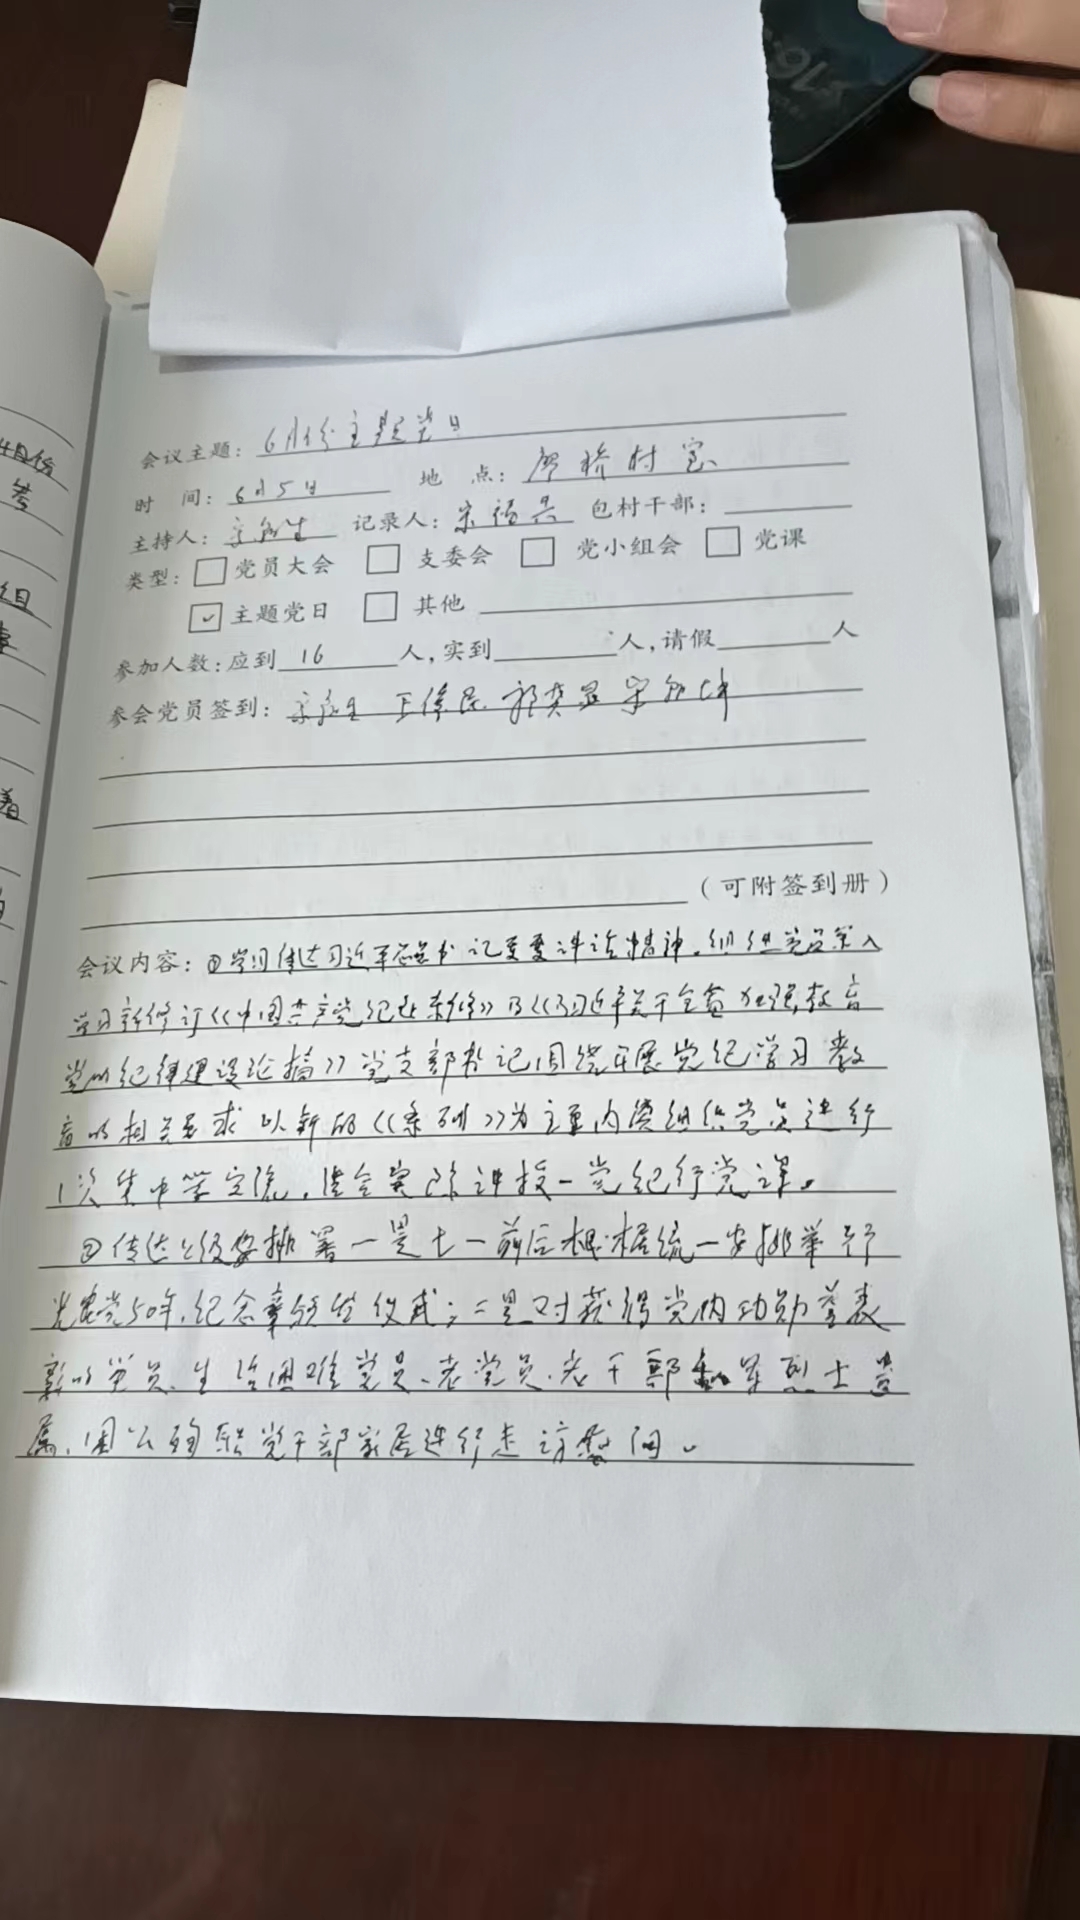 会议主题: 6月份主题党日
时 间: 6月5日 地 点: 桥村室
主持人: 记录人: 宋 包村干部:
类型: 党员大会 支委会 党小组会 党课
主题党日 其他
参加人数: 应到 16 人, 实到 人, 请假 人
参会党员签到: 宋
(可附签到册)
会议内容: ①学习传达习近平总书记重要讲话精神。组织党员深入
学习新修订《中国共产党纪律条例》及《习近平关于全面加强
党的纪律建设论摘》党支部书记围绕开展党纪学习教
育的相关要求 以新的《条例》为主要内容组织党员进行
1次集中学 , 结合实际讲授一 党纪 党课。
②传达上级安排署 一是七一前后根据统一安排举行
光荣在党50年,纪念章颁发仪式; 二是对获得党内功勋荣誉表
彰的党员、生活困难党员、老党员、老干部和 烈士遗
属、因公殉职党干部家属进行走访慰问。
月份
考
组
着